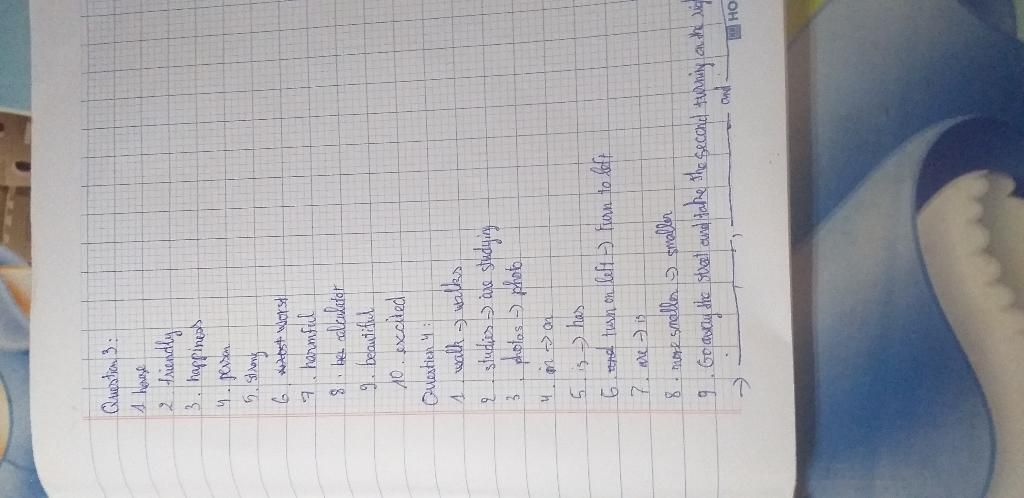 Question 3:
1. house
2. friendly
3. happiness
4. person
5. strong
6. worst
7. harmful
8. calculator
9. beautiful
10. excited
Question 4:
1. walk => walks
2. studies => are studying
3. photos => photo
4. in => on
5. is => has
6. turn on left => turn to left
7. are => is
8. more smaller => smaller
9. Go away the street and take the second turning on the
=> , and
HO